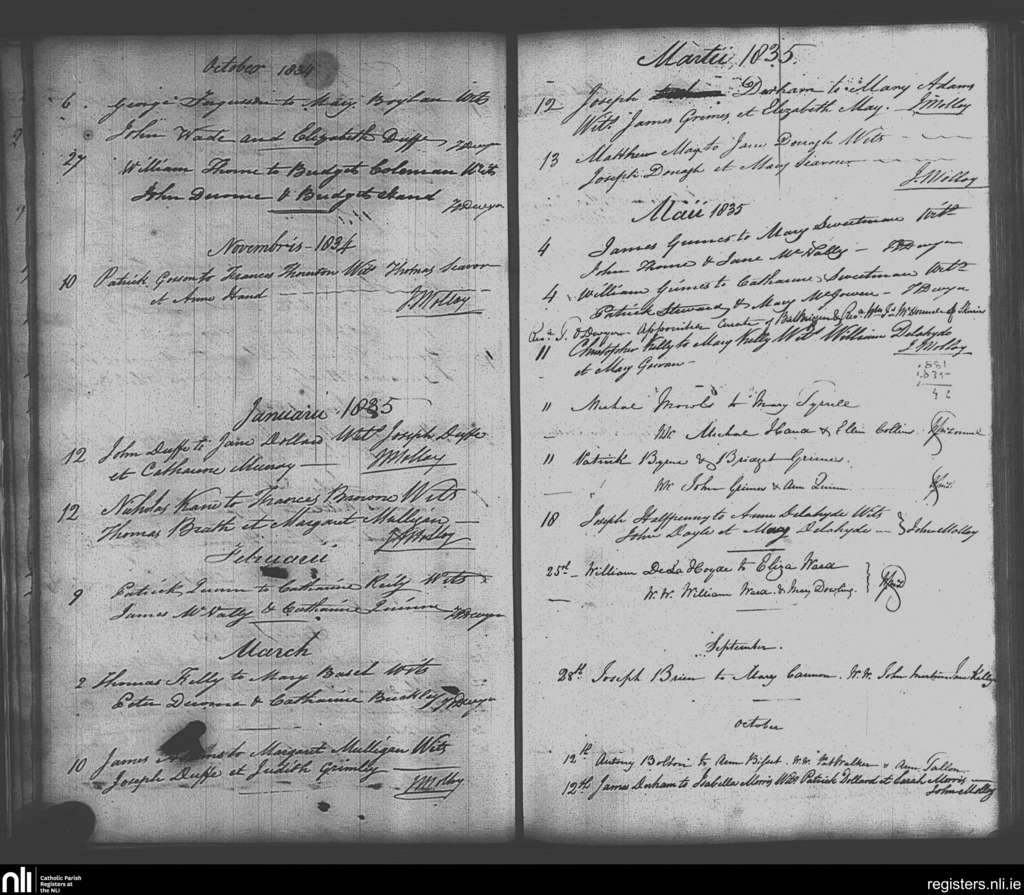 October 1834
6 George Ferguson to Mary Boylan Wits
John Wade and Elizabeth Duffe
27 William Thorne to Bridget Coleman Wits
John Derome & Bridget Hand
Novembris - 1834
10 Patrick to Frances Thornton Wits Thomas Seavor
et Anne Hand J Molloy
Januarii 1835
12 John Duffe to Jane Dollard Wits Joseph Duffe
et Catharine Murray J Molloy
12 Nicholas Kane to Frances Browne Wits
Thomas et Margaret Mulligan
J Molloy
Februarii
9 Patrick to Catharine Reily Wits
James McNally & Catharine
March
2 Thomas Kelly to Mary Basel Wits
Peter & Catharine Buckley
10 James to Margaret Mulligan Wits
Joseph Duffe et Judith Grimley
J Molloy
Martii 1835
12 Joseph Durham to Mary Adams
Wits James Grimes et Elizabeth May. J Molloy
13 Matthew May to Jane Donagh Wits
Joseph Donagh et Mary Seavor
J Molloy
Maii 1835
4 James Grimes to Mary Sweetman Wits
John Thorne & Jane McNally
4 William Grimes to Catharine Sweetman Wits
Patrick Steward & Mary McGowen
Revd. T. O Dwyer Appointed Curate of Balbriggan & of Skerries
11 Christopher Kelly to Mary Kelly Wits William Delahyde
et Mary J Molloy
1831
1835
42
11 Michael to Mary Tyrrell
Ww Michael Hand & Ellen Collins
11 Patrick Byrne & Bridget Grimes.
Ww John Grimes & Ann Quinn
18 Joseph Halfpenny to Anne Delahyde Wits
John Doyle et Mary Delahyde John Molloy
25th William De La Hoyde to Eliza Ward
W.W. William Ward & Mary Dowling.
September.
28th Joseph Brien to Mary Cannon. W.W. John Martin Jane Kelly
October
12th Antony to Ann W.W. Walker & Ann Tallon
12th James Derham to Isabella Morris Wits Patrick Dollard et Sarah Morris
John Molloy
nli Catholic Parish
Registers at
the NLI
registers.nli.ie